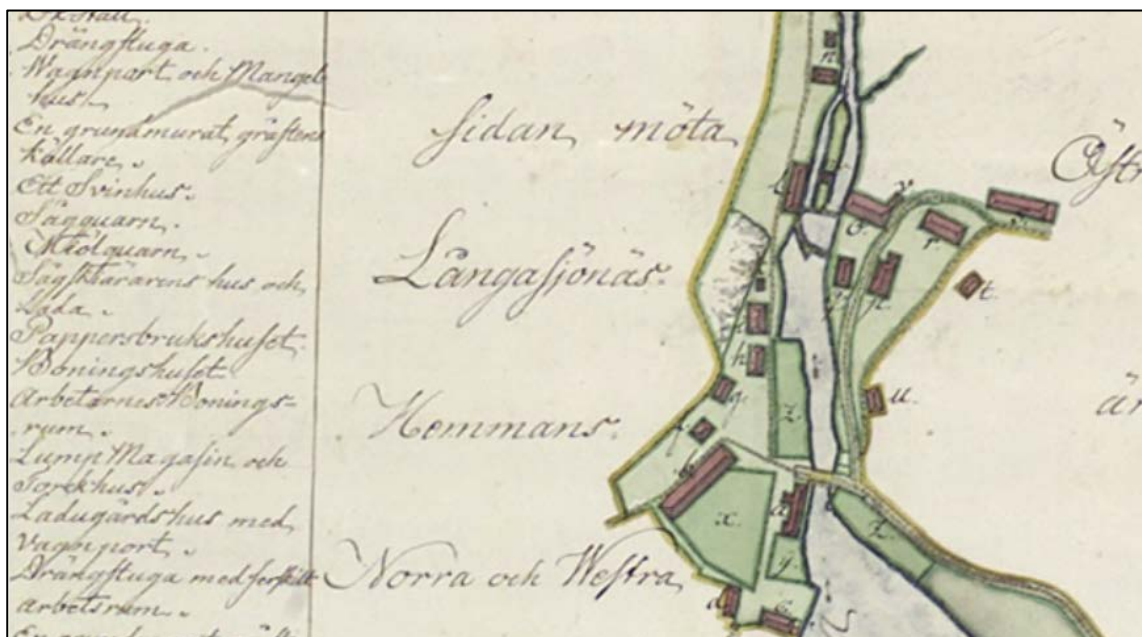 Oxstall.
Drängstuga.
Wagnport och Mangel-
hus.
En grundmurat gråstens
Källare.
Ett Svinhus.
Sågquarn.
Miölquarn.
Sågskärarens hus och
Lada.
Pappersbrukshuset.
Boningshuset.
Arbetarnes Bonings-
rum.
Lump Magasin och
Torckhus.
Ladugårdshus med
Vagnport.
Drängstuga med serskilt
Arbetsrum.
sidan möta
Långasjönäs.
Hemmans.
Norra och Westra
Östr
är
n
l
o.
v
r.
t.
p.
h
g.
u.
z.
x.
a
z.
y.
d
c